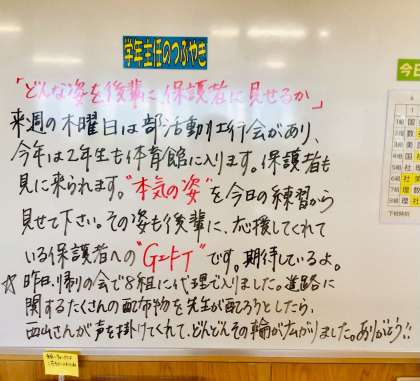 学年主任のつぶやき
「どんな姿を後輩に、保護者に見せるか」
来週の木曜日は部活動壮行会があり、
今年は2年生も体育館に入ります。保護者も
見に来られます。"本気の姿"を今日の練習から
見せて下さい。その姿も後輩に、応援してくれて
いる保護者への"GIFT"です。期待しているよ。
☆昨日、帰りの会で8組に代理で入りました。進路に
関するたくさんの配布物を先生が配ろうとしたら、
西山さんが声を掛けてくれて、どんどんその輪が広がりました。ありがとう!!
今日
1
1組 国
2組 数
3組 英
4組 国
5組 社
6組 社
7組 理
8組 理
9組 社
下校時刻